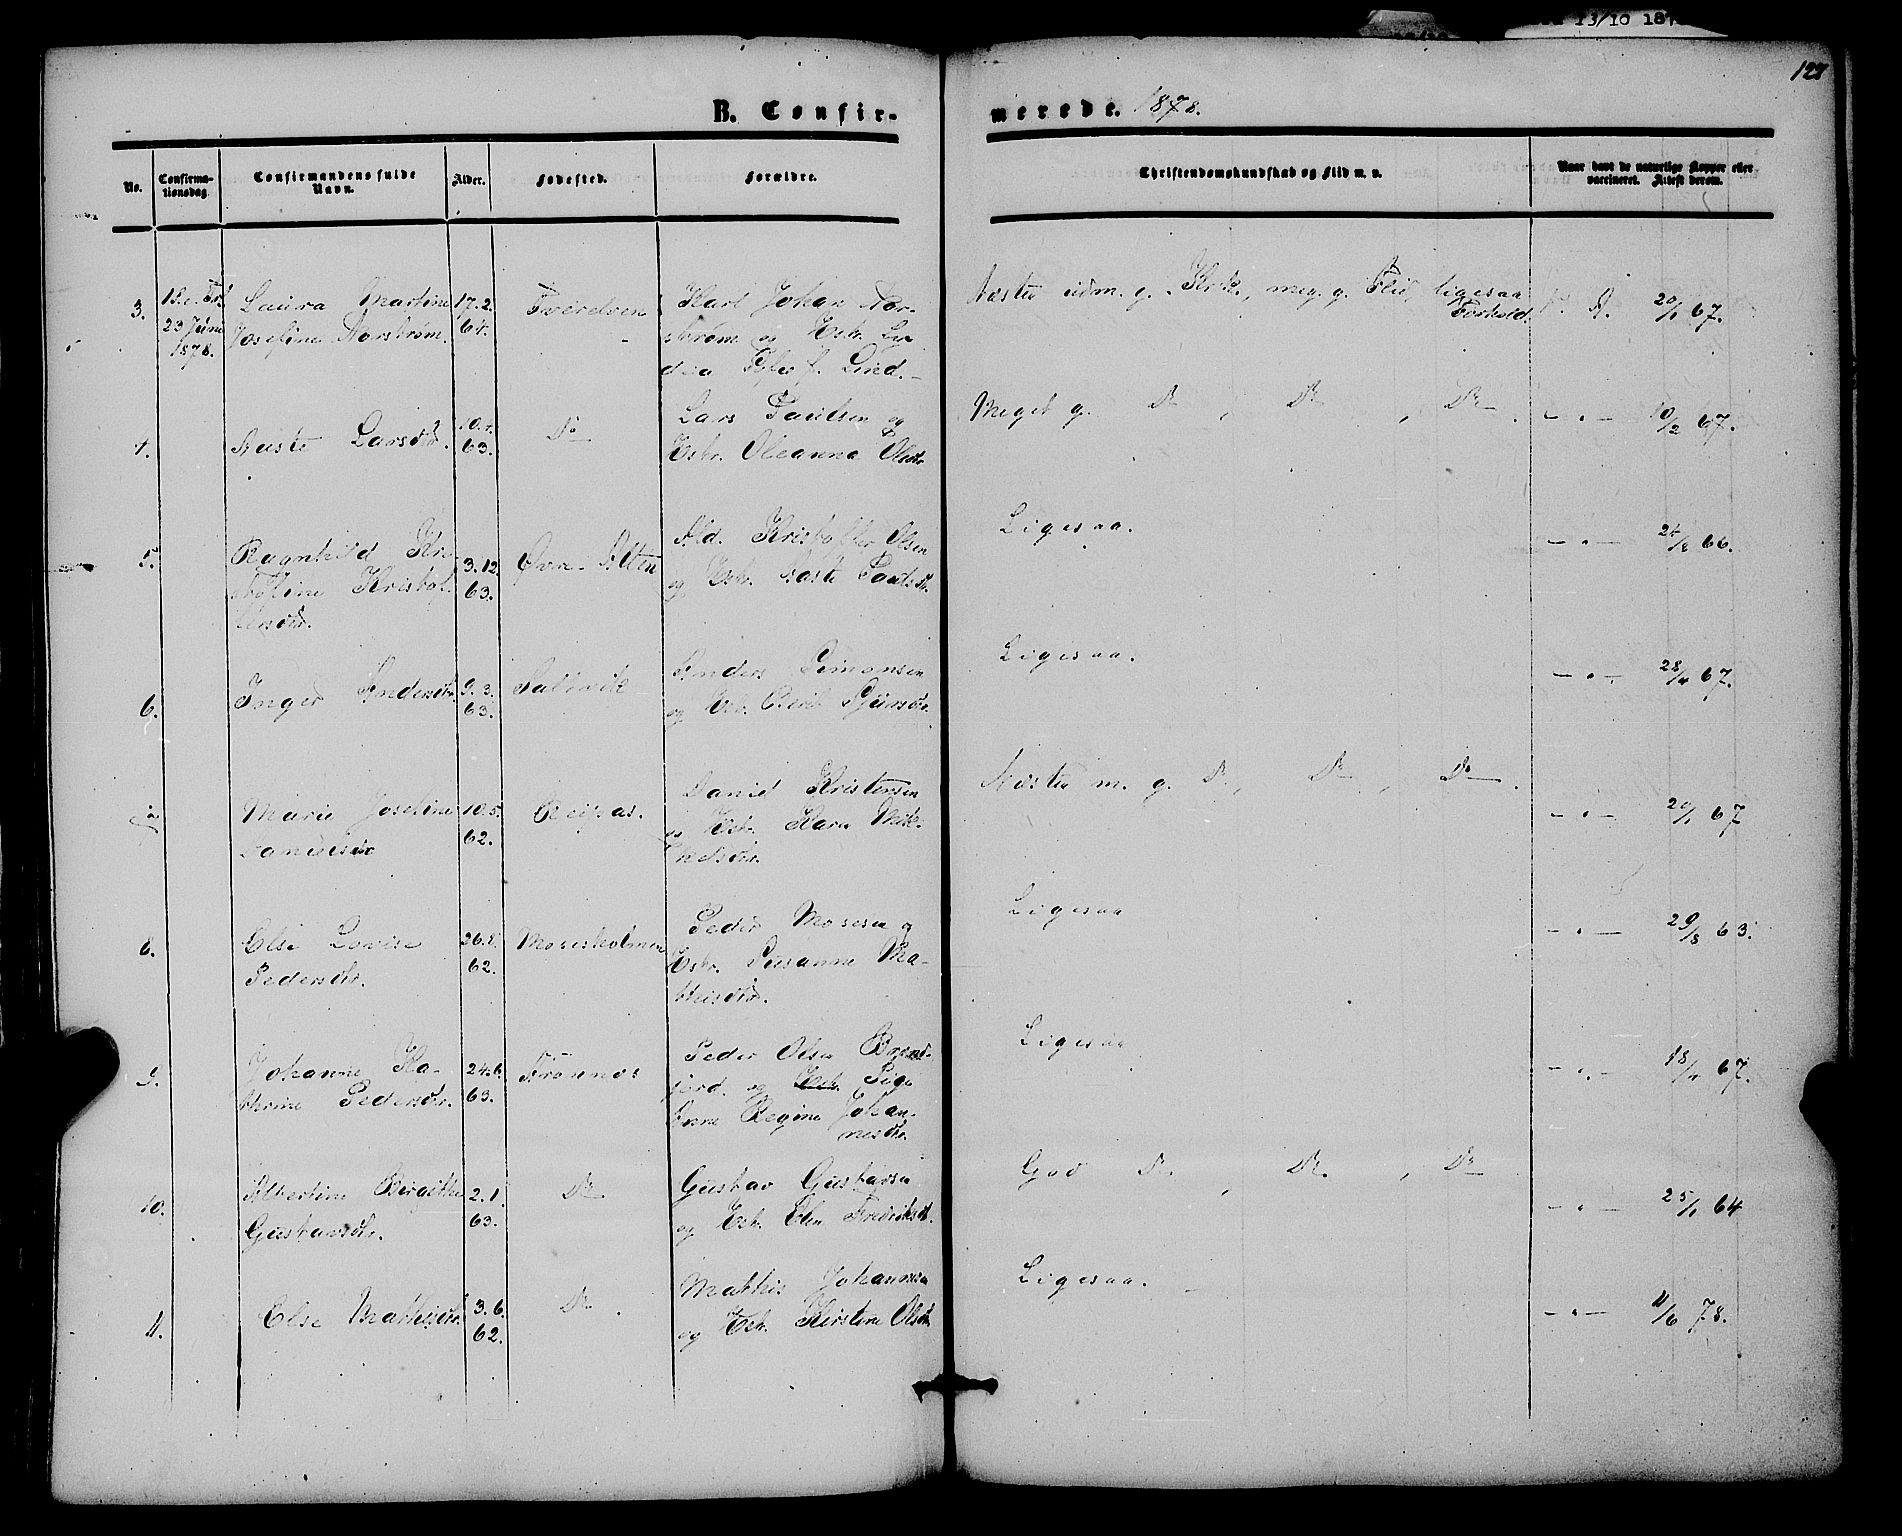 13/10 187
122
B. Confir-
merede. 1878.
No.
Confirma-
tionsdag.
Confirmandens fulde
Navn.
Alder.
Fødested.
Forældre.
Christendomskundskab og Flid m. v.
Naar havt de naturlige Kopper eller
vaccineret. Attest derom.
3.
23 Juni
1878.
Laura Martine
Josefine Norstrøm.
17. 2.
64.
Tverelven
Karl Johan Nor-
strøm og Hstr. Ly-
dia f. Lind.
Næsten udm. g. Krk., meg. g. Flid, ligesaa
Forhold.
20/1 67.
4.
Larsdtr.
10. 4.
63.
Do
Lars Paulsen og
Hstr. Oleanna Olsdtr.
Meget g. Do, Do, Do.
— " — 10/2 67.
5.
Ragnhild Kri-
stofine Kristof-
fersdtr.
3. 12.
63.
Øvre Alten
Kristoffer Olsen
og Hstr. Paulsdtr.
Ligesaa.
— " — 66.
6.
Inger Andersdtr.
9. 3.
63.
Anders Simonsen
og Hstr.
Ligesaa.
— " — 28/4 67.
7.
Marie Josefine
Danielsdtr
10. 5.
62.
Reipas.
Daniel Kristensen
og Hstr. Karen Mik-
kelsdtr.
Næsten m. g. Do, Do, Do.
— " — 20/1 67
8.
Else Lovise
Pedersdtr.
26. 8.
62.
Mosesholmen
Peder Mosesen og
Hstr. Susanne Ma-
thisdtr.
Ligesaa
— " — 29/8 63.
9.
Johanne Ka-
thrine Pedersdtr.
24. 6.
63.
Peder Olsen
og Hstr. Pige
Anne Regine Johan-
nesdtr.
Ligesaa
— " — 18/4 67.
10.
Albertine Birgitte
Gustavsdtr.
2. 1.
63.
Do
Gustav Gustavsen
og Hstr. Elen Fredriksdtr.
God Do, Do, Do
— " — 25/1 64
11.
Else Mathisdtr.
3. 6.
62.
Do.
Mathis Johannesen
og Hstr. Kirsten Olsdtr.
Ligesaa.
— " — 11/6 78.